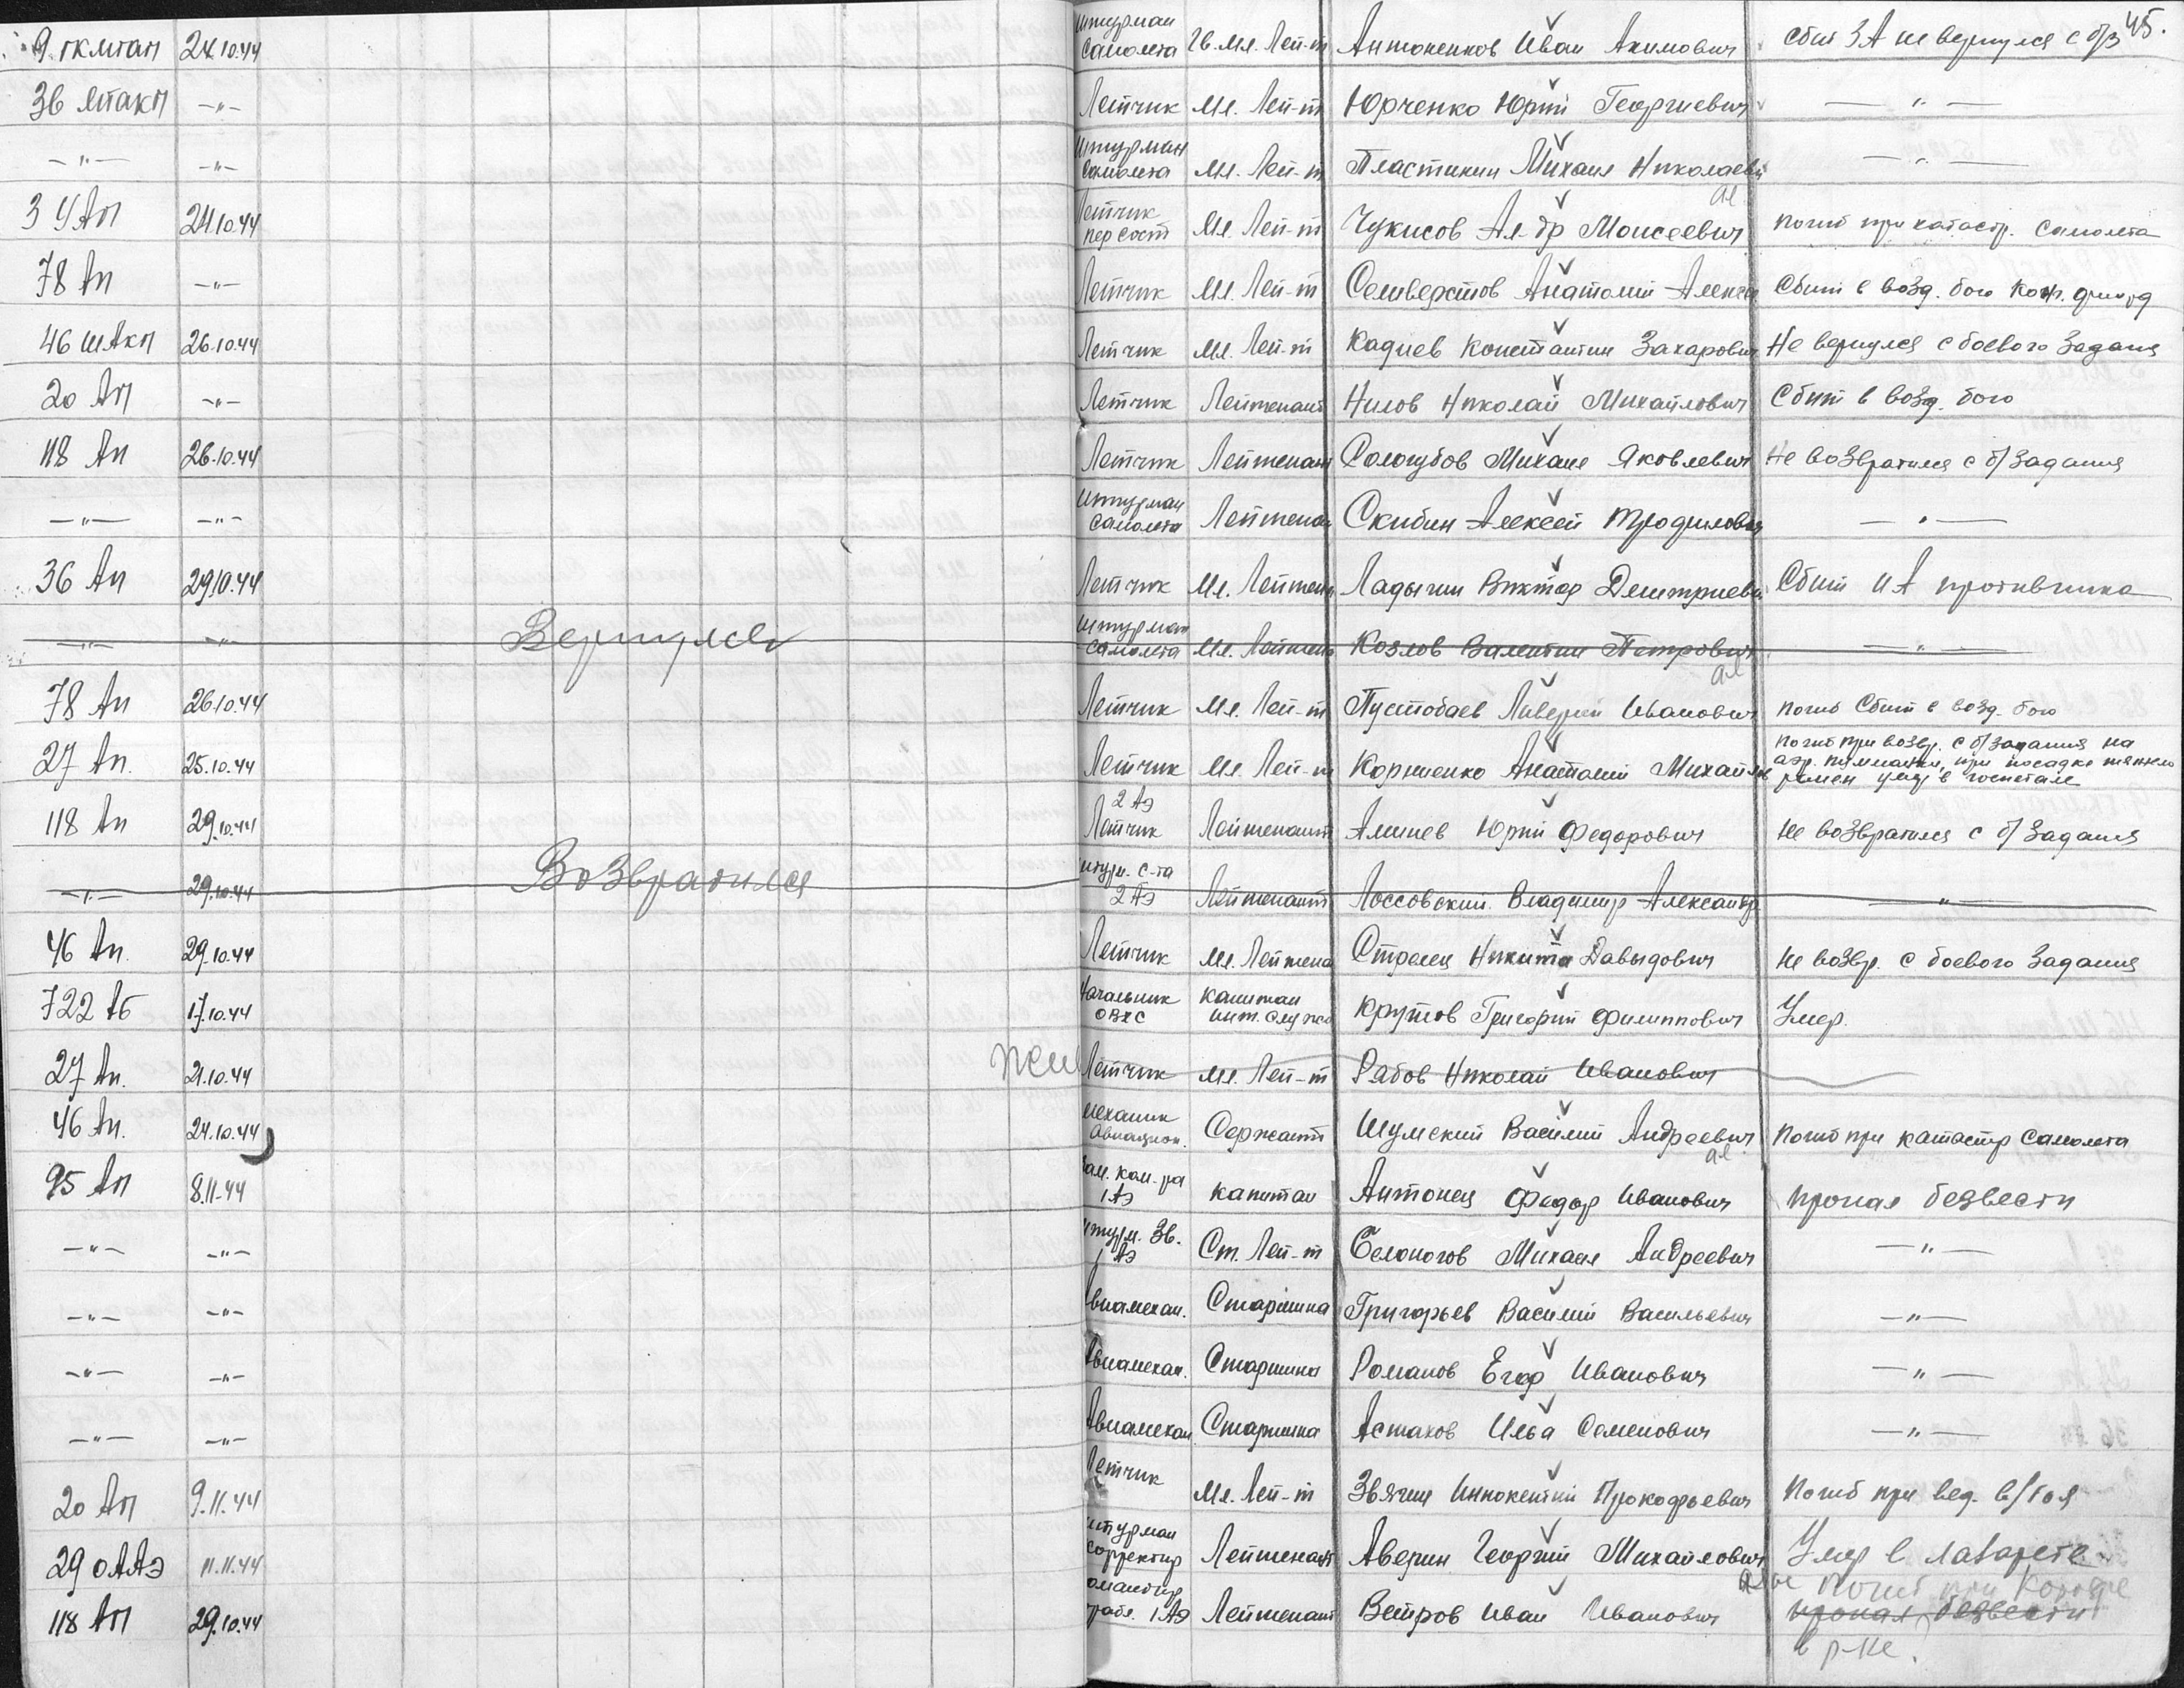 45.
9 гкмтап 24.10.44 Штурман самолета Гв. мл. Лей-т Антоненков Иван Акимович сбит ЗА не вернулся с б/з
36 мтакп —"— Летчик Мл. Лей-т Юрченко Юрий Георгиевич —"—
—"— —"— Штурман самолета Мл. Лей-т Пластинин Михаил Николаевич —"—
3 УАП 24.10.44 Летчик пер сост Мл. Лей-т Чукисов Ал-др Моисеевич погиб при катастр. самолета
78 Ап —"— Летчик Мл. Лей-т Селиверстов Анатолий Алексее Сбит в возд. бою
46 шАкп 26.10.44 Летчик Мл. Лей-т Кадиев Константин Захарович Не вернулся с боевого задания
20 АП —"— Летчик Лейтенант Нилов Николай Михайлович Сбит в возд. бою
118 Ап 26.10.44 Летчик Лейтенант Сологубов Михаил Яковлевич Не возвратился с б/задания
—"— —"— Штурман самолета Лейтенан Скибин Алексей —"—
36 Ап 29.10.44 Летчик Мл. Лейтен Ладыгин Виктор Дмитриеви Сбит ИА противника
—"— —"— Вернулся Штурман самолета Мл. Лейтен Козлов Валентин Петрович —"—
78 Ап 26.10.44 Летчик Мл. Лей-т Пустобаев Ливерий Иванович погиб Сбит в возд. бою
27 Ап. 25.10.44 Летчик Мл. Лей-т Корниенко Анатолий Михайлов погиб при возвр. с б/задания на
аэр. при посадке тяжело
ранен умер в госпитале
118 Ап 29.10.44 2 Аэ Летчик Лейтенант Аминев Юрий Федорович Не возвратился с б/задания
—"— 29.10.44 Возвратился штурм. с-та 2 Аэ Лейтенант Лоссовский Владимир Александр —"—
46 Ап. 29.10.44 Летчик Мл. Лейтена Стрелец Никита Давыдович Не возвр. с боевого задания
722 Аб 17.10.44 Начальник ОВХС капитан инт. служб Крутов Григорий Филиппович Умер.
27 Ап. 21.10.44 жив Летчик Мл. Лей-т Рябов Николай Иванович
46 Ап. 24.10.44 механик авиацион. Сержант Шумский Василий Андреевич Погиб при катастр самолета
95 АП 8.11.44 зам. ком-ра 1 Аэ капитан Антонец Федор Иванович пропал безвести
—"— —"— штурм. Зв. 1 Аэ Ст. Лей-т Белоногов Михаил Андреевич —"—
—"— —"— Авиамехан. Старшина Григорьев Василий Васильевич —"—
—"— —"— Авиамехан. Старшина Романов Егор Иванович —"—
—"— —"— Авиамехан Старшина Астахов Илья Семенович —"—
20 АП 9.11.44 Летчик Мл. Лей-т Звягин Иннокентий Прокофьевич Погиб при вед. в/боя
29 оААЭ 11.11.44 Штурман корректир Лейтенант Аверин Георгий Михайлович Умер в лазарете
118 АП 29.10.44 командир 1 Аэ Лейтенант Ветров Иван Иванович погиб при
пропал безвести
в р-не